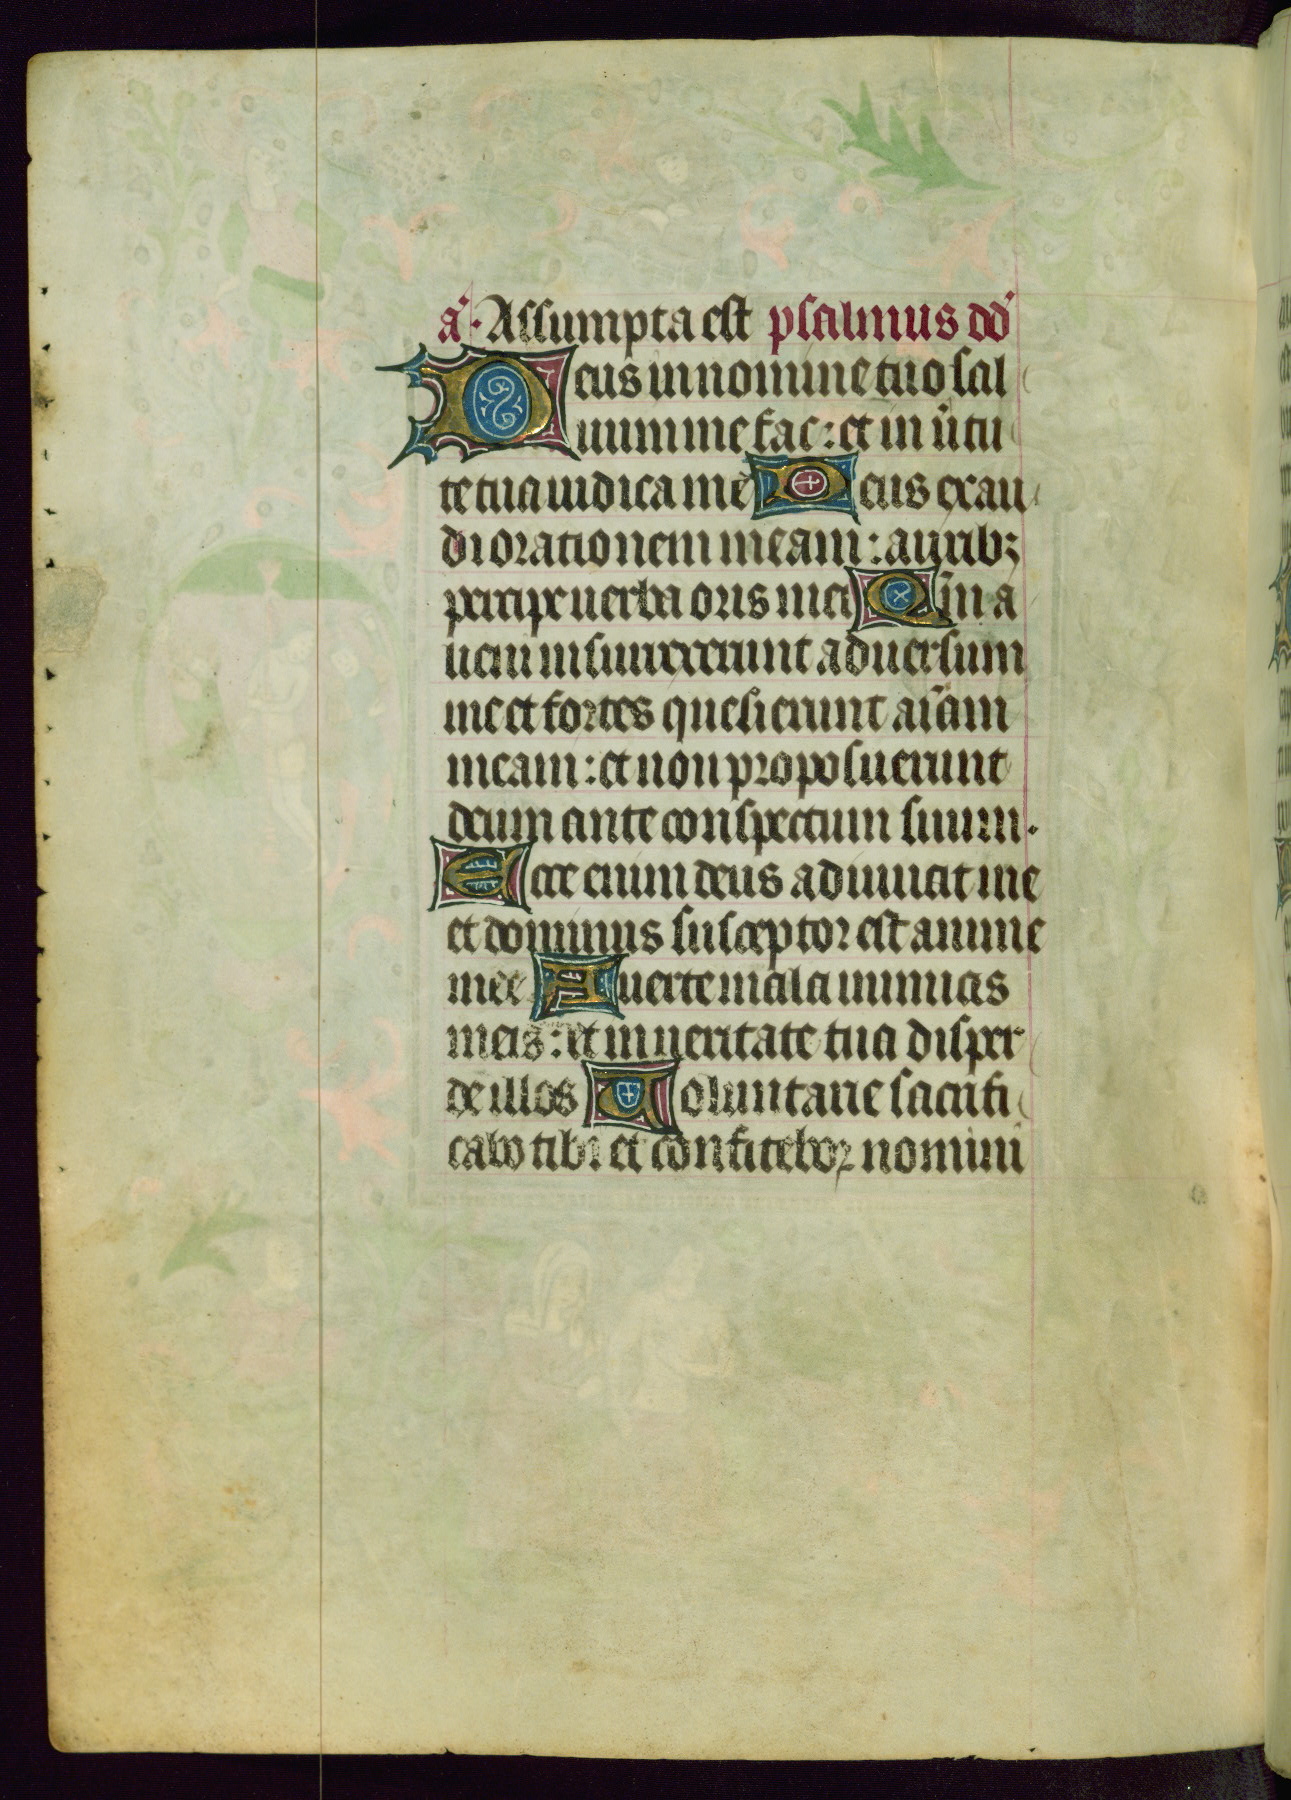 a̅· Assumpta est psalmus dd̅
Deus in nomine tuo sal
uum me fac: et in ũtu
te tua iudica me Deus exau
di orationem meam: aurib;
percipe uerba oris mei Qm̅ a
lieni insurrexerunt aduersum
me et fortes quesierunt aiãm
meam: et non proposuerunt
deum ante conspectum suum.
Ecce enim deus adiuuat me
et dominus susceptor est anime
mee Auerte mala inimicis
meis: et in ueritate tua disper
de illos Uoluntarie sacrifi
cabo tibi et confitebor nomini